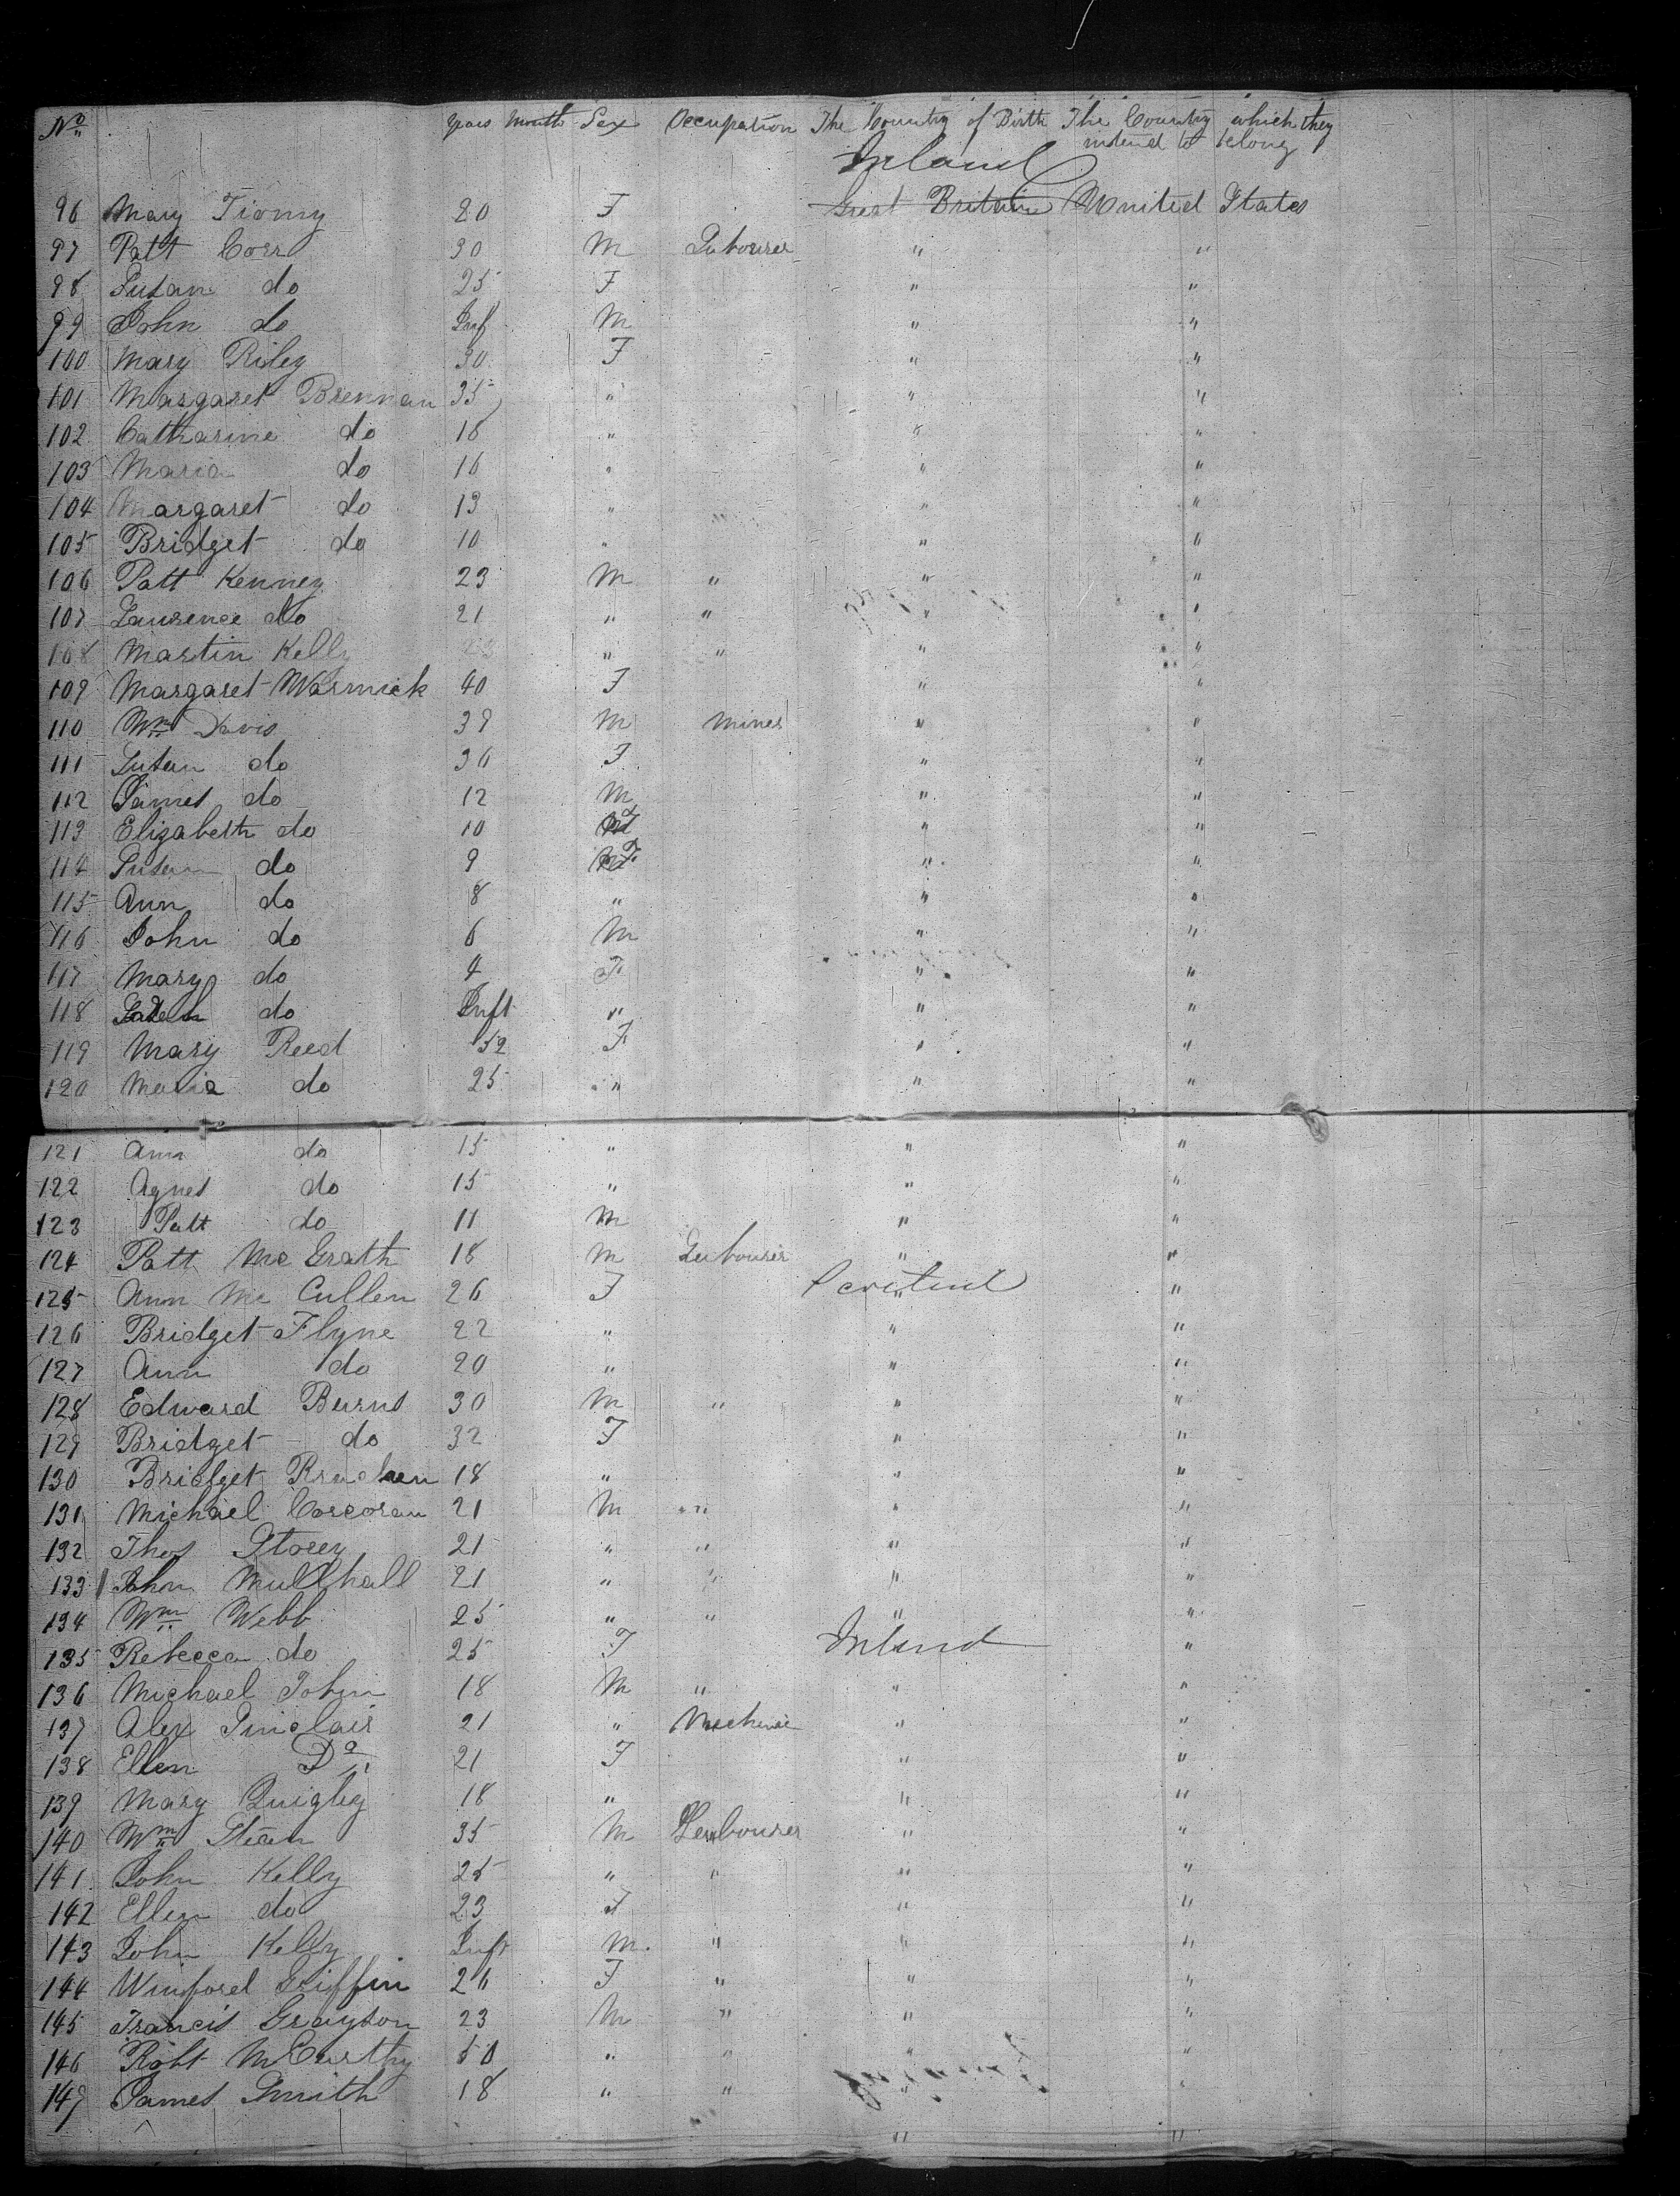 No Years Month Sex Occupation The Country of Birth The Country which they
intend to belong
Ireland
96 Mary 20 F Great Britain United States
97 Patt Corr 30 M Labourer " "
98 Susan do 25 F " "
99 John do Inf M " "
100 Mary Riley 30 F " "
101 Margaret Brennan 35 " " "
102 Catharine do 18 " " "
103 Maria do 16 " " "
104 Margaret do 13 " " "
105 Bridget do 10 " " "
106 Patt Kenney 23 M " " "
107 Laurence do 21 " " " "
108 Martin Kelly " " " "
109 Margaret Warnick 40 F " "
110 Wm Davis 39 M Miner " "
111 Susan do 36 F " "
112 James do 12 M " "
113 Elizabeth do 10 F " "
114 Susan do 9 F " "
115 Ann do 8 " " "
116 John do 6 M " "
117 Mary do 4 F " "
118 do Inft " " "
119 Mary Reed 52 F " "
120 Maria do 25 " " "
121 Ann do 15 " " "
122 Agnes do 15 " " "
123 Patt do 11 M " "
124 Patt McGrath 18 M Labourer " "
125 Ann McCullen 26 F " "
126 Bridget Flyne 22 " " "
127 Ann do 20 " " "
128 Edward Burns 30 M " " "
129 Bridget do 32 F " "
130 Bridget 18 " " "
131 Michael Corcoran 21 M " " "
132 Thos Storey 21 " " " "
133 John Mullhall 21 " " " "
134 Wm Webb 25 " " " "
135 Rebecca do 25 F Ireland "
136 Michael Tobin 18 M " " "
137 Alex Sinclair 21 " Mechanic " "
138 Ellen Do 21 F " "
139 Mary Quigley 18 " " "
140 Wm 35 M Labourer " "
141 John Kelly 25 " " " "
142 Ellen do 23 F " "
143 John Kelly Inft M " " "
144 Winifored Griffin 26 F " " "
145 Francis Grayson 23 M " " "
146 Robt McCurthy 50 " " " "
147 James Smith 18 " " " "
" "